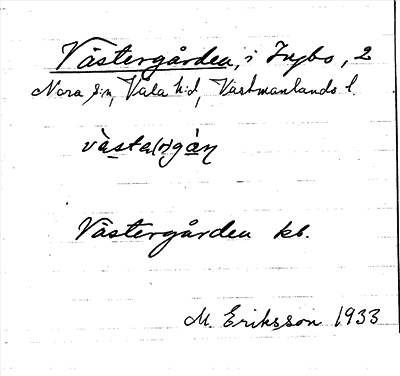 Västergården, i Ingbo, 2
Nora s:n, Våla h:d, Västmanlands l.
västa(r)gàɳ
Västergården kb.
M. Eriksson 1933